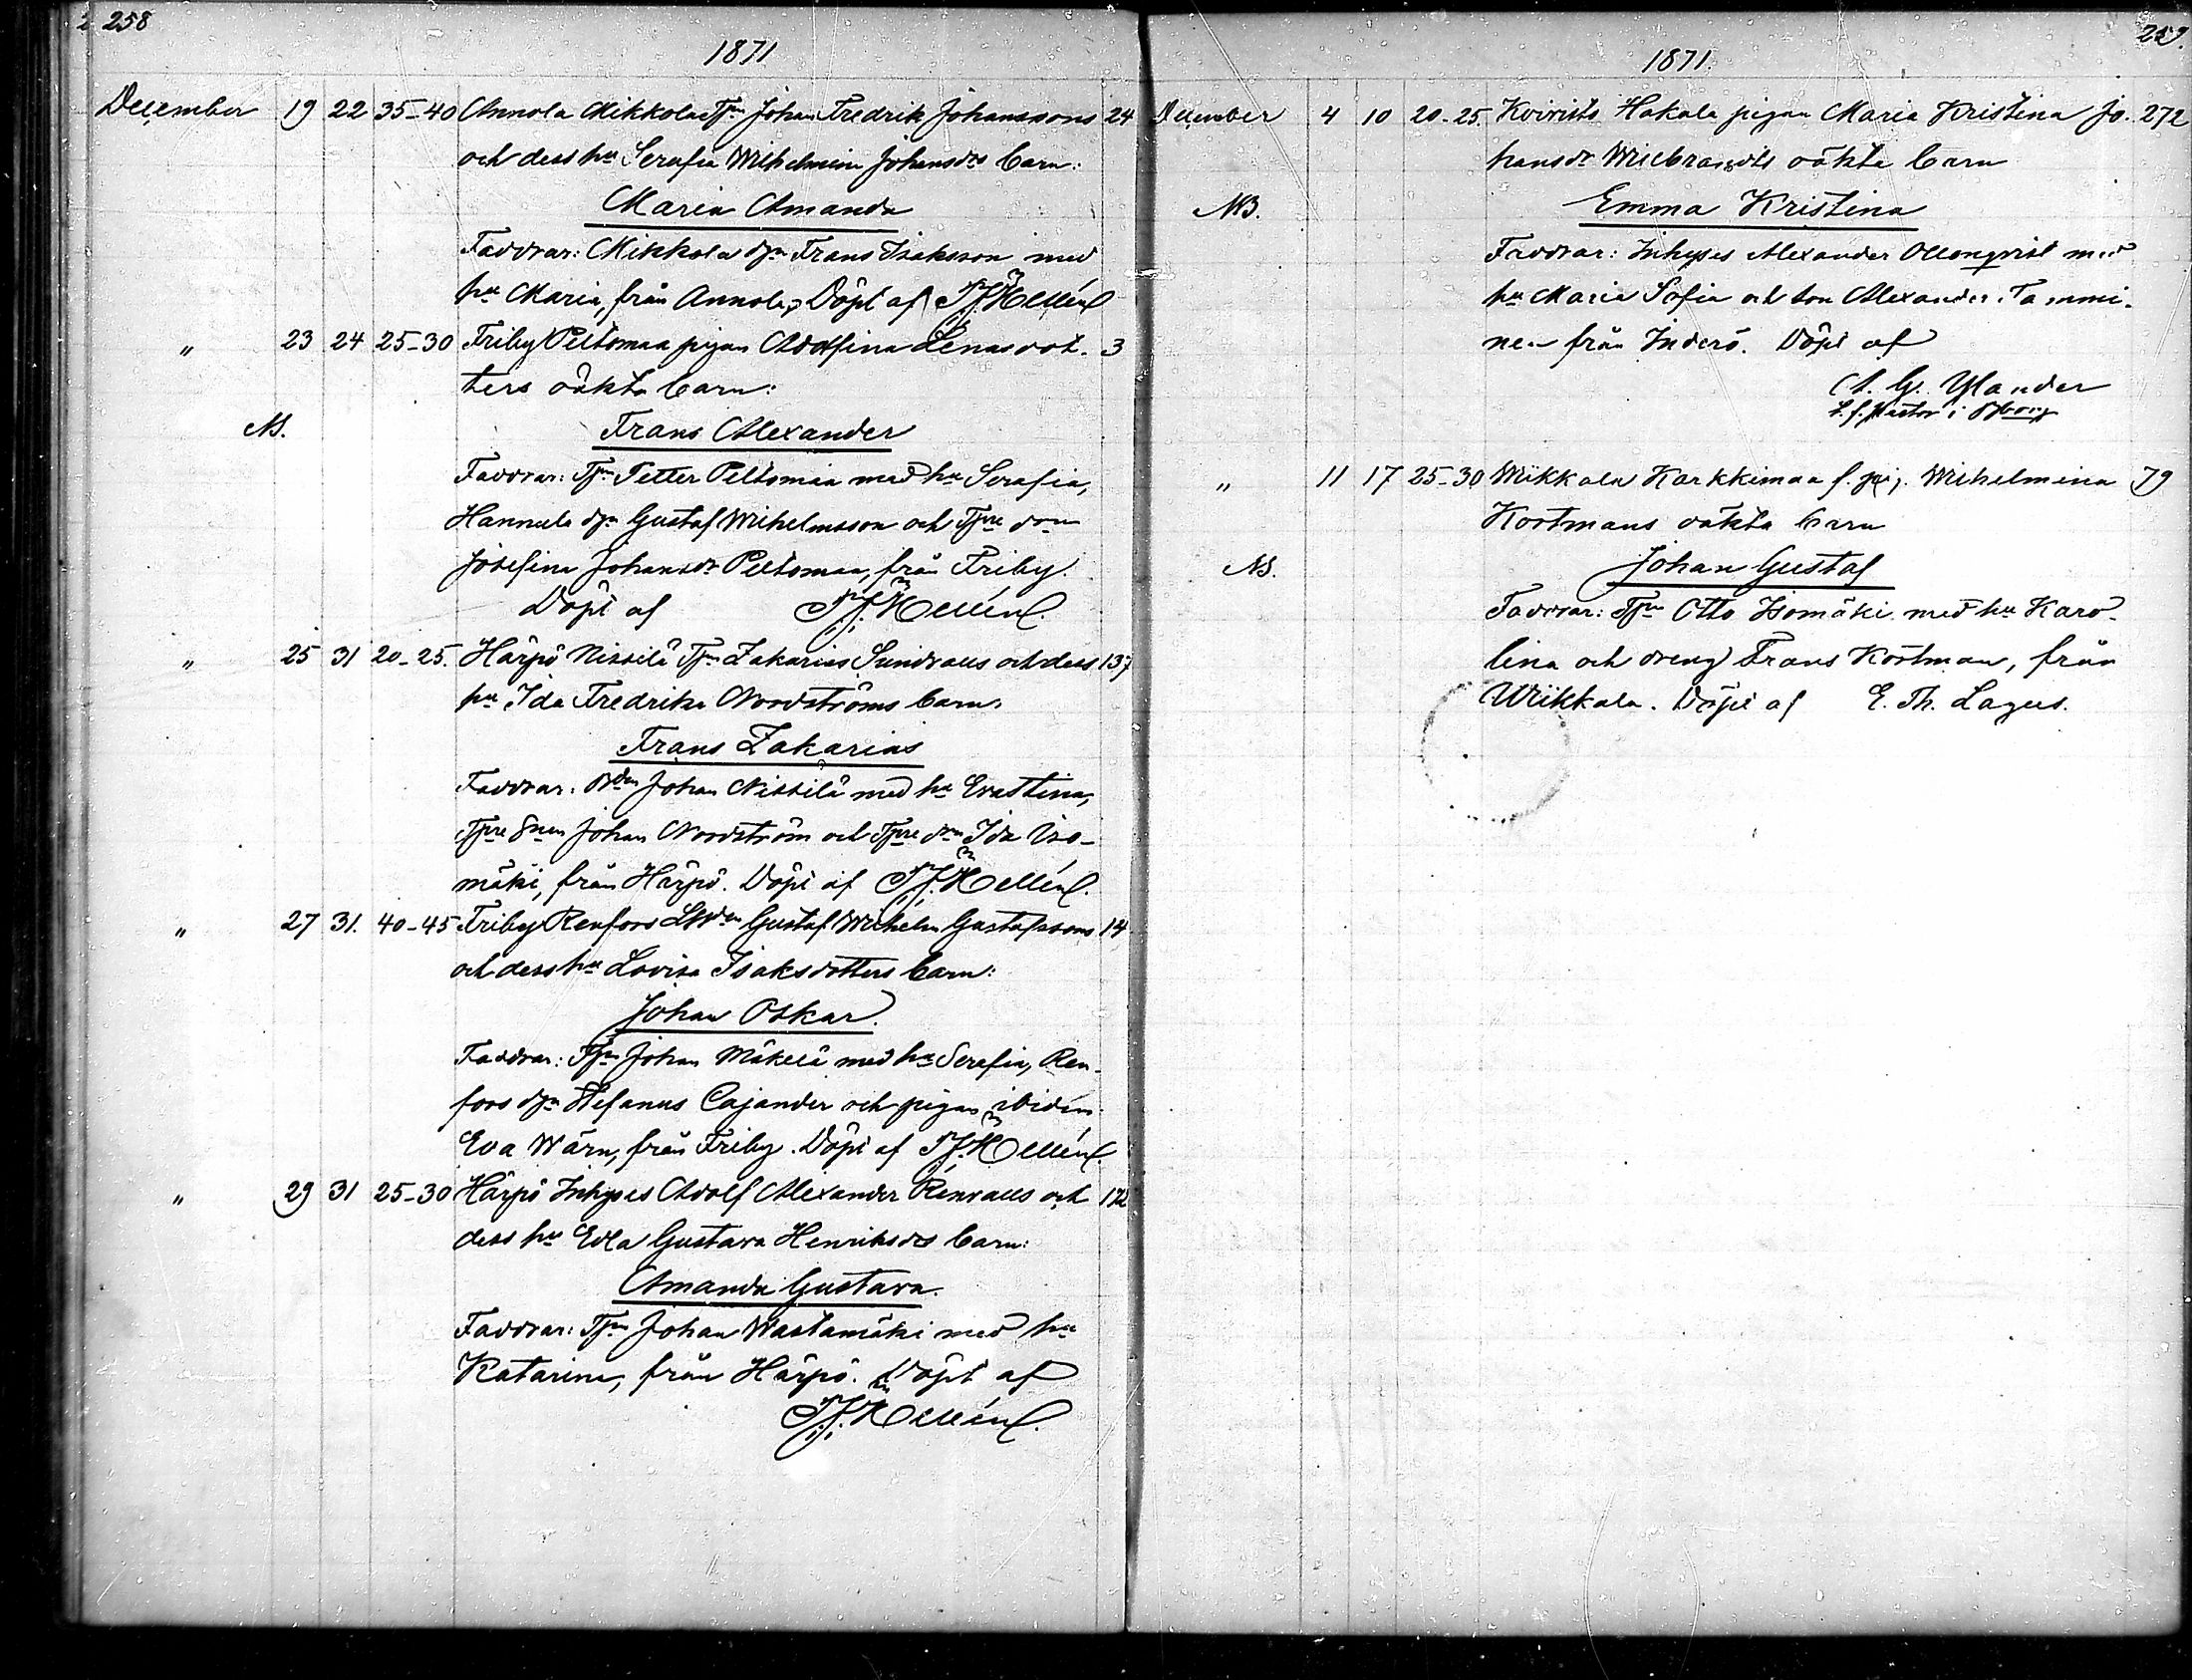 258
1871
December 19 22 35-40 Annola Mikkola Tpn Johan Fredrik Johanssons 24
och dess hu Serafia Wilhelmina Johansdrs barn:
Maria Amanda
Faddrar: Mikkola Frans Isaksson med
hu Maria, från Annola, Döpt af Hellén
" 23 24 25-30 Friby Peltomaa pigan Adolfina Lenasdot- 3
ters oäkta barn:
Frans Alexander
Faddrar: Tpn Petter Peltomaa med hu Serafia,
Hannula Gustaf Wilhelmsson och Tpre drn
Josefina Johansdr Peltomaa, från Friby.
Döpt af Hellén.
" 25 31 20-25. Härpö Nissilä Tpn Zakarias Sundvalls och dess 137
hu Ida Fredrika Nordströms barn.
Frans Zakarias
Faddrar: Johan Nissilä med hu Evastina,
Tpre Johan Nordström och Tpre drn Ida Iso-
mäki, från Härpö. Döpt af Hellén.
" 27 31. 40-45 Friby Renfors Gustaf Wilhelm Gustafssons 14
och dess hu Lovisa Isaksdotters barn:
Johan Oskar.
Faddrar: Tpn Johan Mäkelä med hu Serafia, Ren-
fors Stefanus Cajander och pigan ibidem
Eva Wärn, från Friby. Döpt af Hellén.
" 29 31 25-30 Härpö Inhyses Adolf Alexander Renvalls och 172
dess hu Edla Gustava Henriksdrs barn:
Amanda Gustava.
Faddrar: Tpn Johan Wastamäki med hu
Katarina, från Härpö. Döpt af
Hellén.
259.
1871.
December 4 10 20-25. Koivisto Hakala pigan Maria Kristina Jo- 272
hansdr Willbrandts oäkta barn
NB.
Emma Kristina
Faddrar: Inhyses Alexander Ollonqvist med
hu Maria Sofia och son Alexander Tammi-
nen från Inderö. Döpt af
A. G. Ylander
t. f. Pastor i
" 11 17 25-30 Wiikkala Karkkimaa f. pig. Wilhelmina 79
Kortmans oäkta barn
Johan Gustaf
Faddrar: Tpn Otto Isomäki med hu Karo-
lina och dreng Frans Kortman, från
Wiikkala. Döpt af E. Th. Lagus.